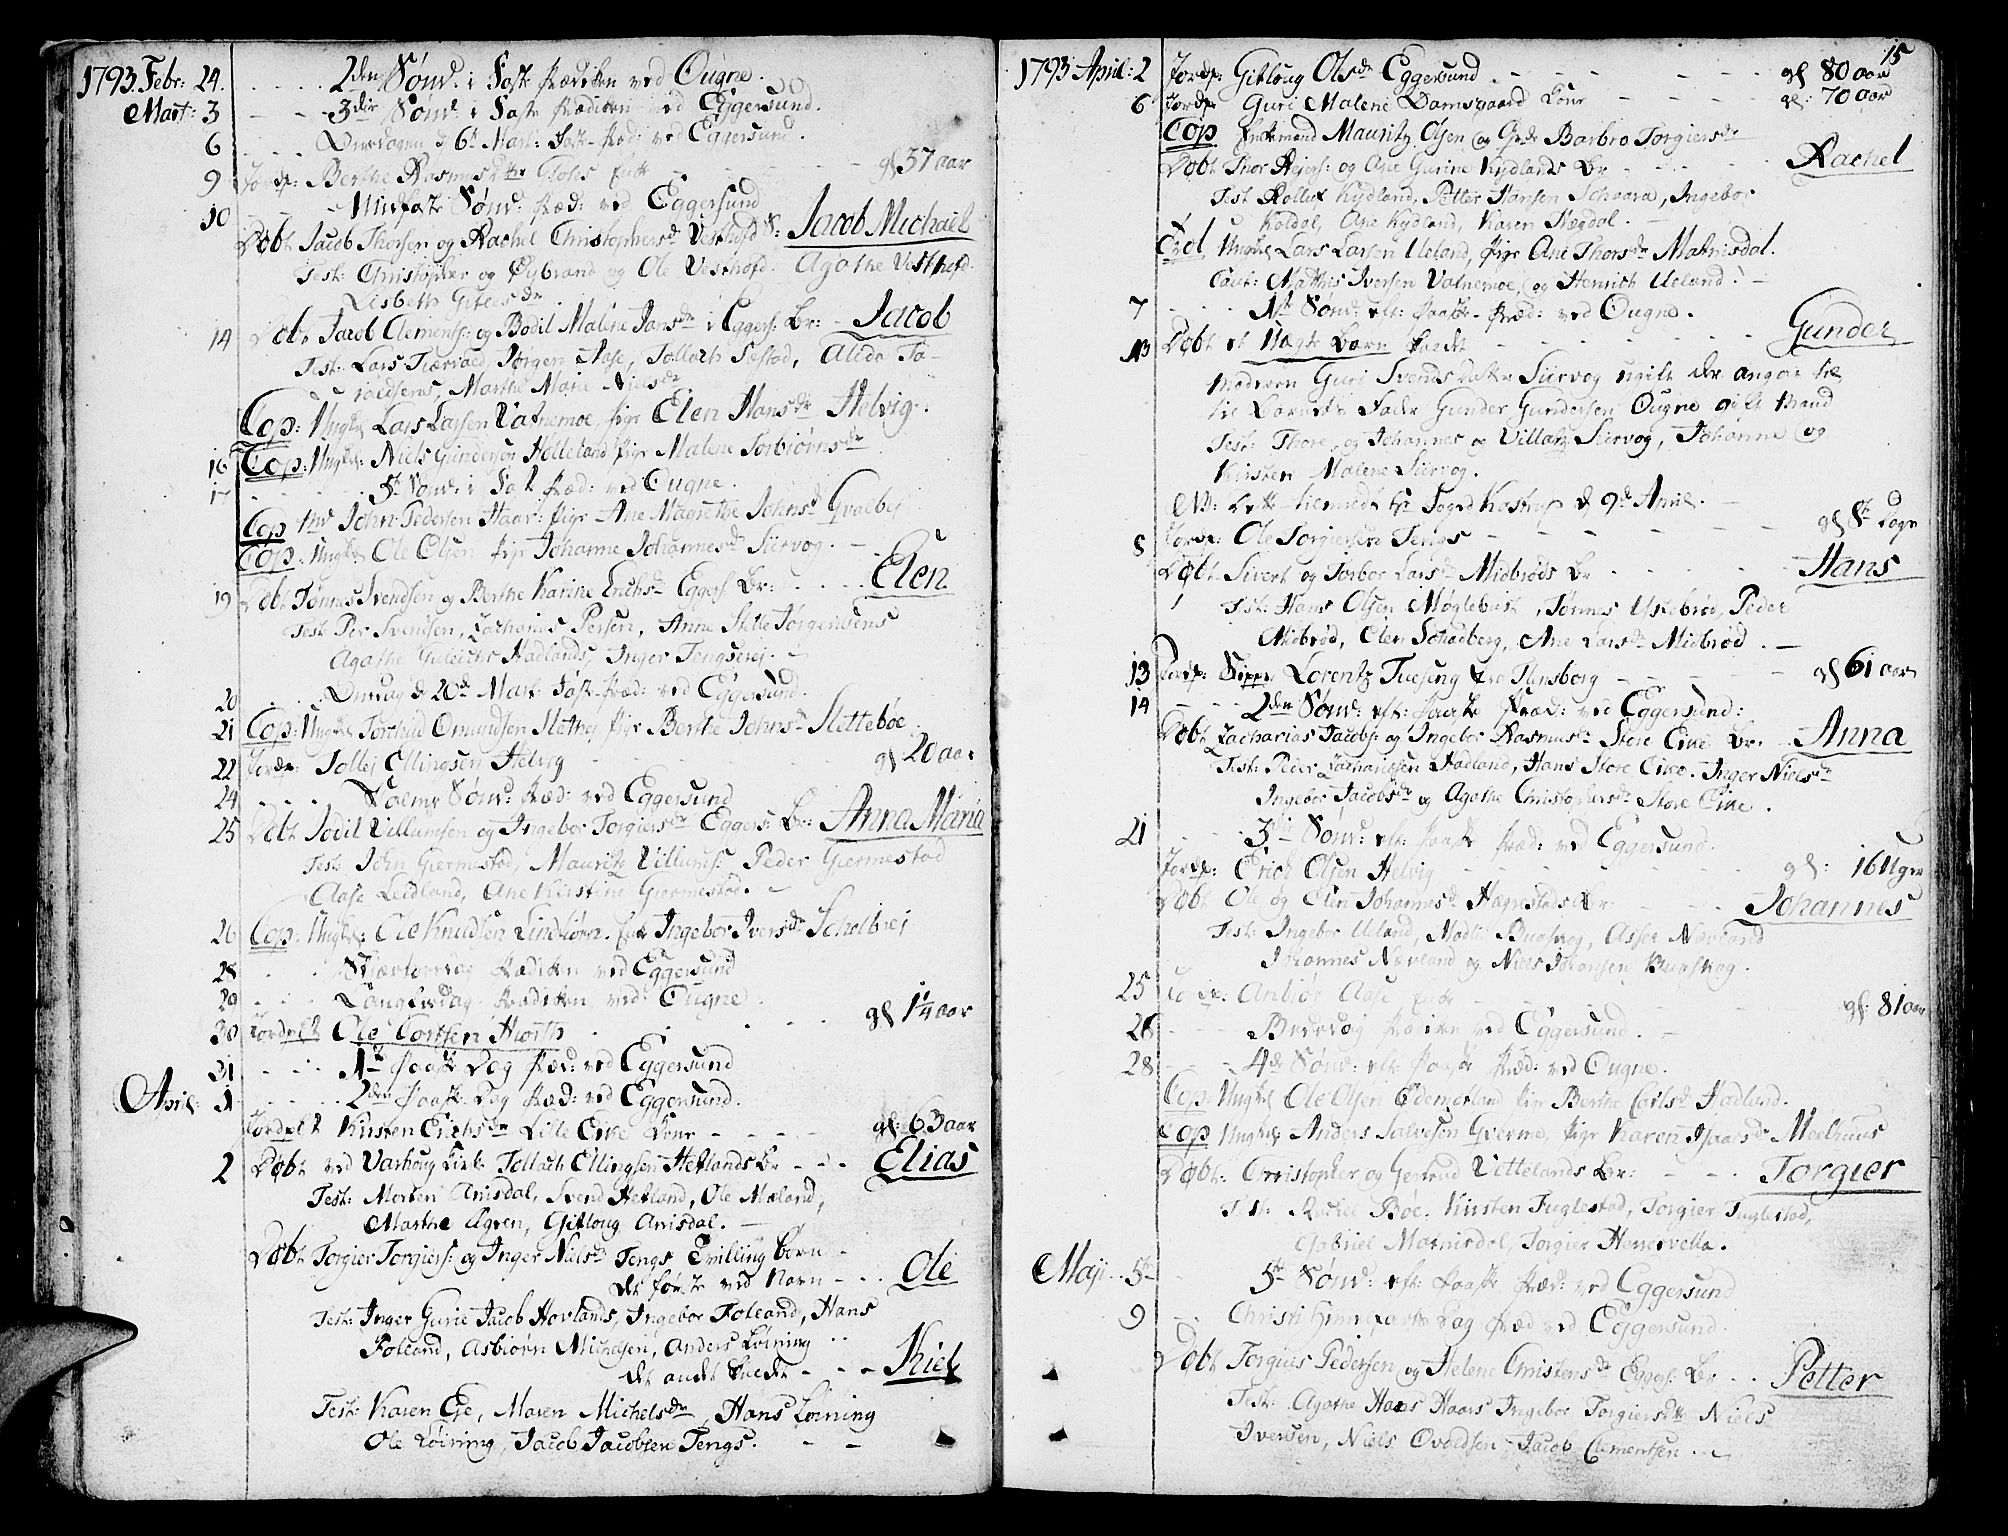 1793. Febr: 24. 2den Sønd: i Faste Prædiken ved Ougne.
Mart: 3 3die Sønd: i Faste Prædiken ved Eggersund.
6 Onsdagen d 6te Mart: Faste Præd: ved Eggersund.
9 Jordf: Berthe Rasmusdttr gl 37 aar
10 Midfaste Sønd: Præd: ved Eggersund
Døbt Jacob Thorsen og Rachel Christophersdr Vesthofd S: Jacob Michael
Test: Christopher og Sybrand og Ole Vesthofd. Agathe Vesthofd.
Lisbeth
14 Døbt Jacob Clements: og Bodil Malene Jansdr i Eggers: Br: Jacob
Test: Lars Jørgen Aase, Tollach Sestad, Alida To-
Marthe Marie Nielsdr
Cop: Ungkl Lars Larsen Vatnemoe, Pige Elen Hansdr Helvig.
16 Cop: Ungkl: Niels Gundersen Helleland Pige Malene Torbiørnsdr
17 5te Sønd: i Faste Præd: ved Ougne.
Cop John Pedersen Haar: Pige Ane Magrethe Johnsdr
Cop: Ungkl Ole Olsen Pige Johanne Johannesdr Siirvog.
19 Døbt Tønnes Svendsen og Berthe Karine Erichsdr Eggers: Br: Elen
Test Per Svendsen, Zacharias Persen, Anne Jørgensens
Agathe Hadlands, Inger
20 Onsdag d 20de Mart Faste Præd: ved Eggersund.
21 Cop: Ungkl Omundsen Pige Berthe Johnsdr Slettebøe.
22 Jordf: Tollej Ellingsen Helvig gl 20 aar
24 Palme Sønd: Præd: ved Eggersund
25 Døbt Villumsen og Ingebor Torgiersdr Eggers: Br: Anna Maria
Test: John Giermestad, Mauritz Villums: Peder Giermestad
Aase Leidland, Ane Kirstine Giermestad.
26 Cop: Ungkl: Ole Knudsen Lindtiørn. Ingebor Iversdr
28 Skiærtorsdag Prædiken ved Eggersund
29 Langfredag Prædiken ved Ougne.
30 Jordfæst Ole gl 1 1/4 aar
31 1ste Paaske Dag Præd: ved Eggersund
April: 1 2den Paaske Dag Præd: ved Eggersund.
Jordfæst Kirsten Erichsdr Lille Eike Kone gl: 63 aar
2 Døbt ved Varhoug Kirke Tollach Ellingsen Hetlands Br Elias
Test: Morten Anisdal, Svend Hetland, Ole Mæland,
Marthe Ogren, Gitloug Anisdal.
Døbt Torgier Torgiers: og Inger Nielsdr Tengs Tvilling børn
det første ved Navn Ole
Test: Inger Gurie Jacob Hovlands, Ingebor Foland, Hans
Foland, Asbiørn Michelsen, Anders Løining
det andet kaldet Kiel
Test: Karen Eje, Maren Michelsdr, Hans Løining
Ole Løining, Jacob Jacobsen Tengs.
15
1793 April: 2 Jordf: Gitloug Olsdr Eggersund gl 80 aar
6 Jordf Guri Malene Damsgaard Kone gl: 70 aar
Cop Enkemand Mauritz Olsen og Barbro Torgiersdr
Døbt Thor og Ane Gurine Kydlands Br Rachel
Test Rolluf Kydland, Petter Hansen Schaara, Ingebor
Koldal, Ane Kydland, Karen Hægdal.
Trol Ungkl Lars Larsen Ueland, Pige Ane Thorsdr Matnisdal.
Caut: Mathis Iversen Vatnemoe, og Henrich Ueland.
7 1ste Sønd: eft: Paaske Præd: ved Ougne.
13 Døbt et Uægte Barn kaldet Gunder
Moderen Guri Svends Datter Siirvog ugift der angav til
til Barnets Fader Gunder Gundersen Ougne gift Mand
Test: Thore, og Johannes og Villatz Siirvog, Johanne og
Kirsten Malene Siirvog.
NB: d 9de April.
8 Jordf: Ole Torgiersen Tengs gl 8te Dage
Døbt Sivert og Torbor Larsdr Midbrøds Br Hans
Test: Hans Olsen Møglebust, Tønnes Ystebrød, Peder
Midbrød, Elen Schadberg, Ane Larsdr Midbrød.
13 Jordf: Lorentz Tuesing fra Flensborg gl 61 aar
14 2den Sønd: eft: Paaske Præd: ved Eggersund:
Døbt Zacharias Jacobs: og Ingebor Rasmusdr Store Eike Br: Anna
Test: Peder Zachariesen Hadland, Hans Store Eike. Inger Nielsdr
Ingebor Jacobsdr og Agathe Christophersdr Store Eike.
21 3die Sønd: eft: Paaske Præd: ved Eggersund.
Jordf: Erich Olsen Helvig gl: 16 Uger
Døbt Ole og Elen Johannesdr Hægrestads Br: Johannes
Test: Ingebor Ueland, Asser Nævland
Johannes Nævland og Niels Johansen
25 Aase gl: 81 aar
26 Bededag Prædiken ved Eggersund.
28 4de Sønd: eft: Paaske Præd: ved Ougne.
Cop: Ungkl Ole Olsen Pige Berthe Carlsdr Hadland.
Cop Ungkl Anders Salvesen Qverme, Pige Karen Meelhuus
Døbt: Christopher og Gertrud Vettelands Br: Torgier
Test: Rachel Bøe. Kirsten Fuglestad, Torgier Fuglestad,
Gabriel Matnisdal, Torgier
Maji 5te 5te Sønd: eft: Paaske Præd: ved Eggersund
9 Christi Himmelfarts Dag Præd ved Eggersund.
Døbt Torgius Pedersen og Helene Christensdr Eggers: Br Petter
Test: Agathe Hans Haars Ingebor Torgiersdttr Niels
Iversen, Niels Ovoldsen, Jacob Clementsen